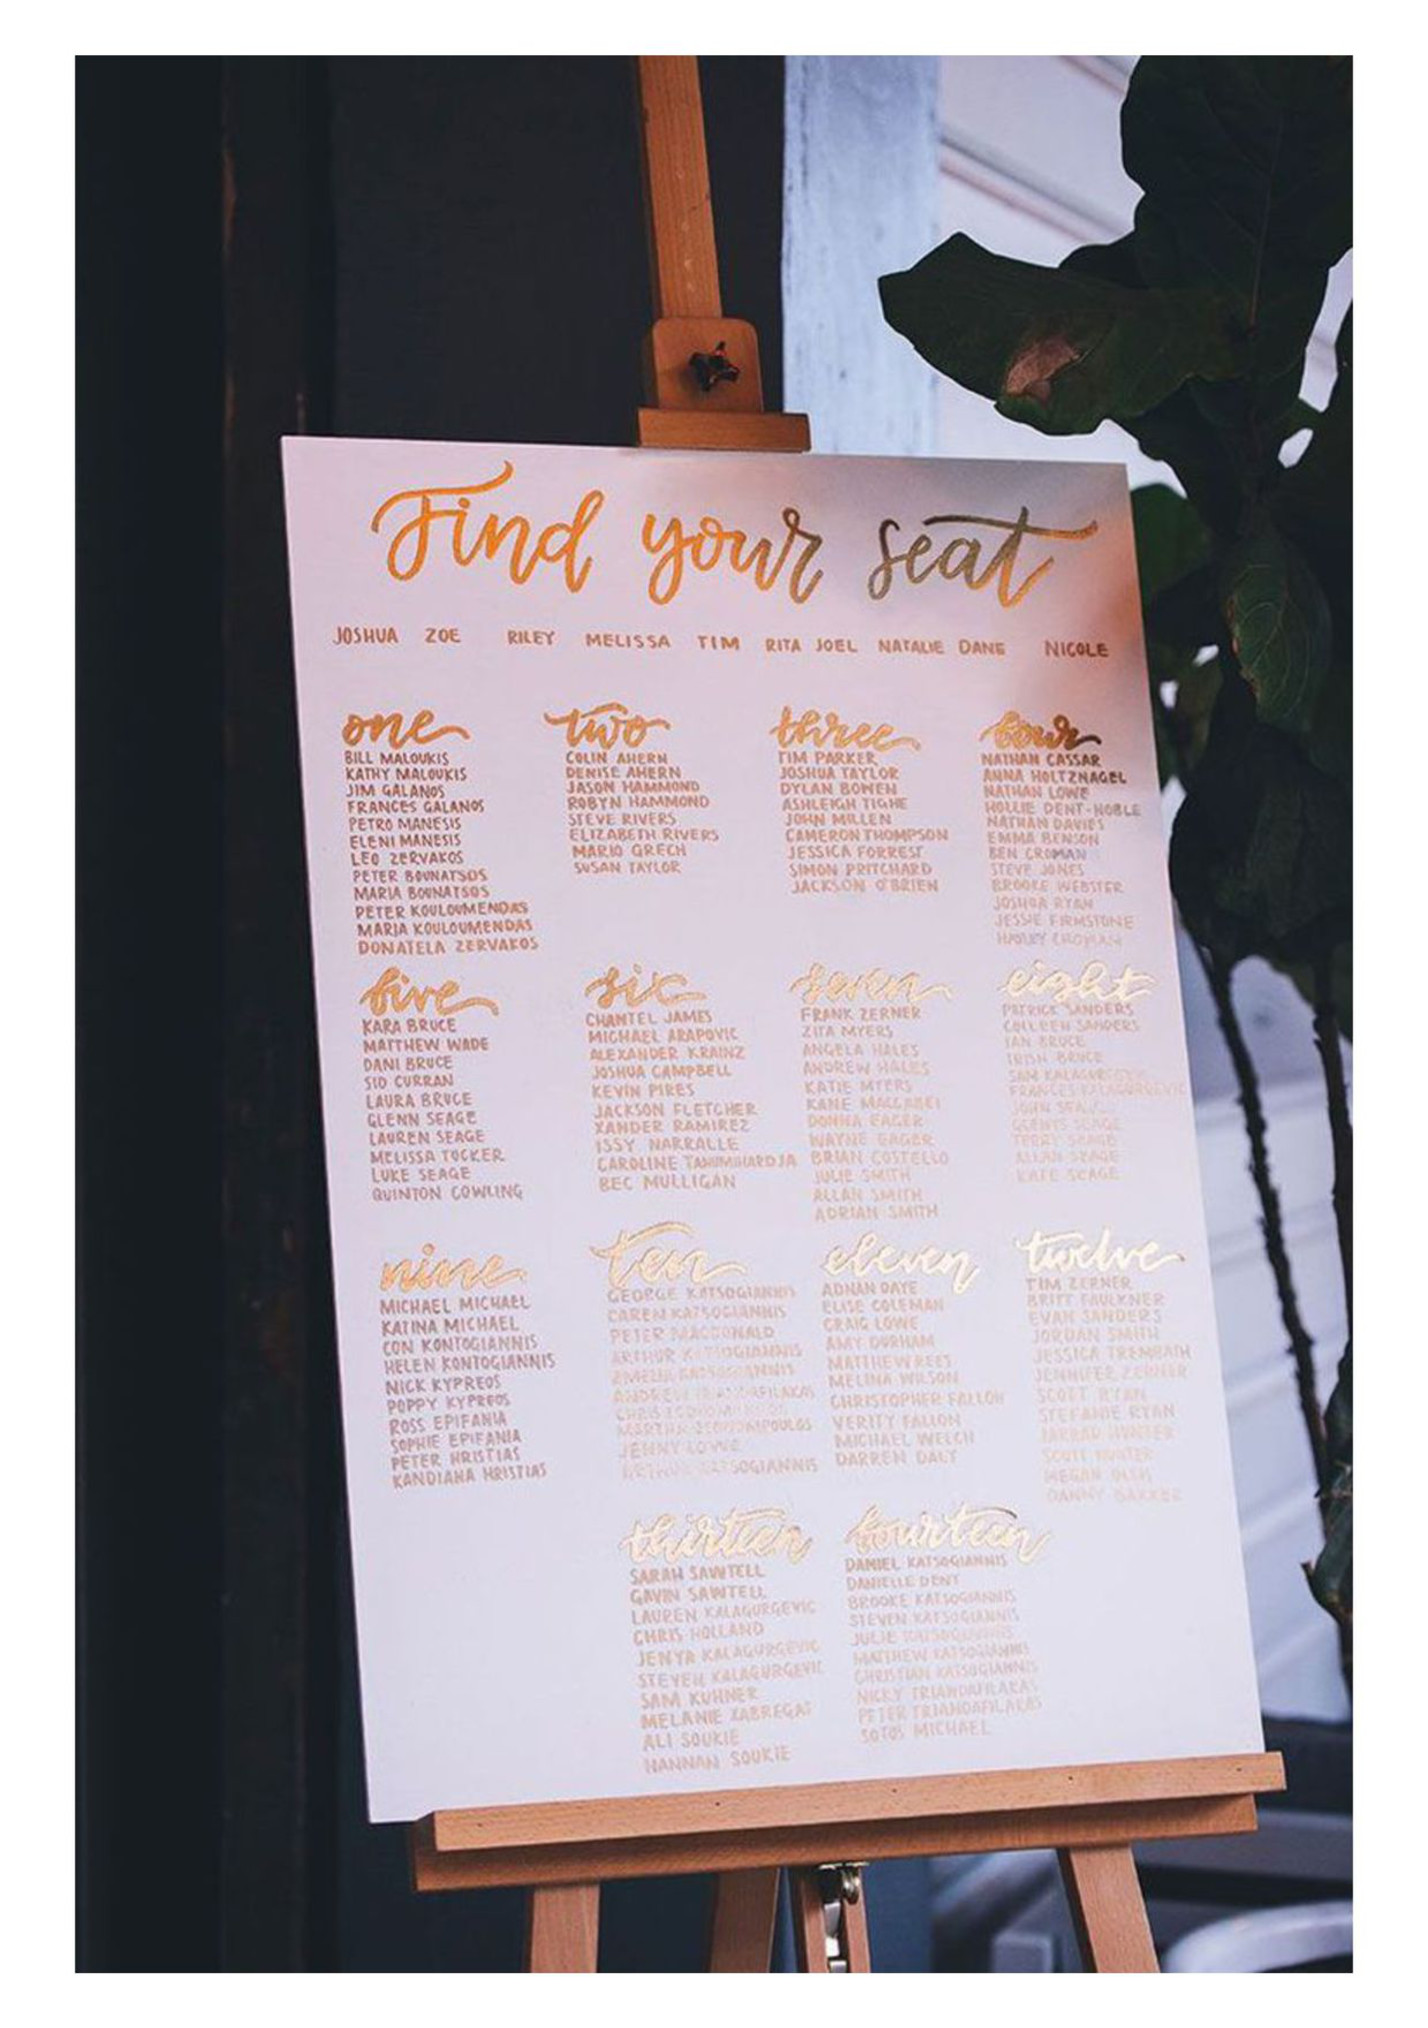 Find your seat
JOSHUA ZOE RILEY MELISSA TIM RITA JOEL NATALIE DANE NICOLE
one
BILL MALOUKIS
KATHY MALOUKIS
JIM GALANOS
FRANCES GALANOS
PETRO MANESIS
ELENI MANESIS
LEO ZERVAKOS
PETER BOUNATSOS
MARIA BOUNATSOS
PETER KOULOUMENDAS
MARIA KOULOUMENDAS
DONATELA ZERVAKOS
two
COLIN AHERN
DENISE AHERN
JASON HAMMOND
ROBYN HAMMOND
STEVE RIVERS
ELIZABETH RIVERS
MARIO GRECH
SUSAN TAYLOR
three
TIM PARKER
JOSHUA TAYLOR
DYLAN BOWEN
ASHLEIGH TIGHE
JOHN MILLEN
CAMERON THOMPSON
JESSICA FORREST
SIMON PRITCHARD
JACKSON O'BRIEN
four
NATHAN CASSAR
ANNA HOLTZNAGEL
NATHAN LOWE
HOLLIE DENT-NOBLE
NATHAN DAVIES
EMMA BENSON
BEN CROMAN
STEVE JONES
BROOKE WEBSTER
JOSHUA RYAN
JESSIE FIRMSTONE
CROMAN
five
KARA BRUCE
MATTHEW WADE
DANI BRUCE
SID CURRAN
LAURA BRUCE
GLENN SEAGE
LAUREN SEAGE
MELISSA TUCKER
LUKE SEAGE
QUINTON COWLING
six
CHANTEL JAMES
MICHAEL ARAPOVIC
ALEXANDER KRAINZ
JOSHUA CAMPBELL
KEVIN PIRES
JACKSON FLETCHER
XANDER RAMIREZ
ISSY NARRALLE
CAROLINE TANUMIHARDJA
BEC MULLIGAN
seven
FRANK ZERNER
ZITA MYERS
ANGELA HALES
ANDREW HALES
KATIE MYERS
KANE MACCABEI
DONNA EAGER
WAYNE EAGER
BRIAN COSTELLO
JULIE SMITH
ALLAN SMITH
ADRIAN SMITH
eight
PATRICK SANDERS
COLLEEN SANDERS
IAN BRUCE
TRISH BRUCE
SAM KALAGURGEVIC
FRANCES KALAGURGEVIC
JOHN SEAGE
GLENYS SEAGE
TERRY SEAGE
ALLAN SEAGE
KATE SEAGE
nine
MICHAEL MICHAEL
KATINA MICHAEL
CON KONTOGIANNIS
HELEN KONTOGIANNIS
NICK KYPREOS
POPPY KYPREOS
ROSS EPIFANIA
SOPHIE EPIFANIA
PETER HRISTIAS
KANDIAHA HRISTIAS
ten
GEORGE KATSOGIANNIS
CAREN KATSOGIANNIS
PETER MACDONALD
ARTHUR KATSOGIANNIS
KATSOGIANNIS
TRIANDAFILAKAS
CHRIS
MARTHA
JENNY LOWE
KATSOGIANNIS
eleven
ADNAN DAYE
ELISE COLEMAN
CRAIG LOWE
AMY DURHAM
MATTHEW REES
MELINA WILSON
CHRISTOPHER FALLON
VERITY FALLON
MICHAEL WELCH
DARREN DALY
twelve
TIM ZERNER
BRITT FAULKNER
EVAN SANDERS
JORDAN SMITH
JESSICA TREMBATH
JENNIFER ZERNER
SCOTT RYAN
STEFANIE RYAN
JARRAD HUNTER
SCOTT HUNTER
MEGAN
DANNY BAKKER
thirteen
SARAH SAWTELL
GAVIN SAWTELL
LAUREN KALAGURGEVIC
CHRIS HOLLAND
JENYA KALAGURGEVIC
STEVEN KALAGURGEVIC
SAM KUHNER
MELANIE ZABREGAS
ALI SOUKIE
HANNAN SOUKIE
fourteen
DANIEL KATSOGIANNIS
DANIELLE DENT
BROOKE KATSOGIANNIS
STEVEN KATSOGIANNIS
JULIE KATSOGIANNIS
MATTHEW KATSOGIANNIS
CHRISTIAN KATSOGIANNIS
NICKY TRIANDAFILAKAS
PETER TRIANDAFILAKAS
SOTOS MICHAEL